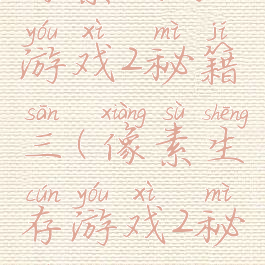 yóu xì mì jí
游戏2秘籍
sān xiàng sù shēng
三(像素生
cún yóu xì mì
存游戏2秘